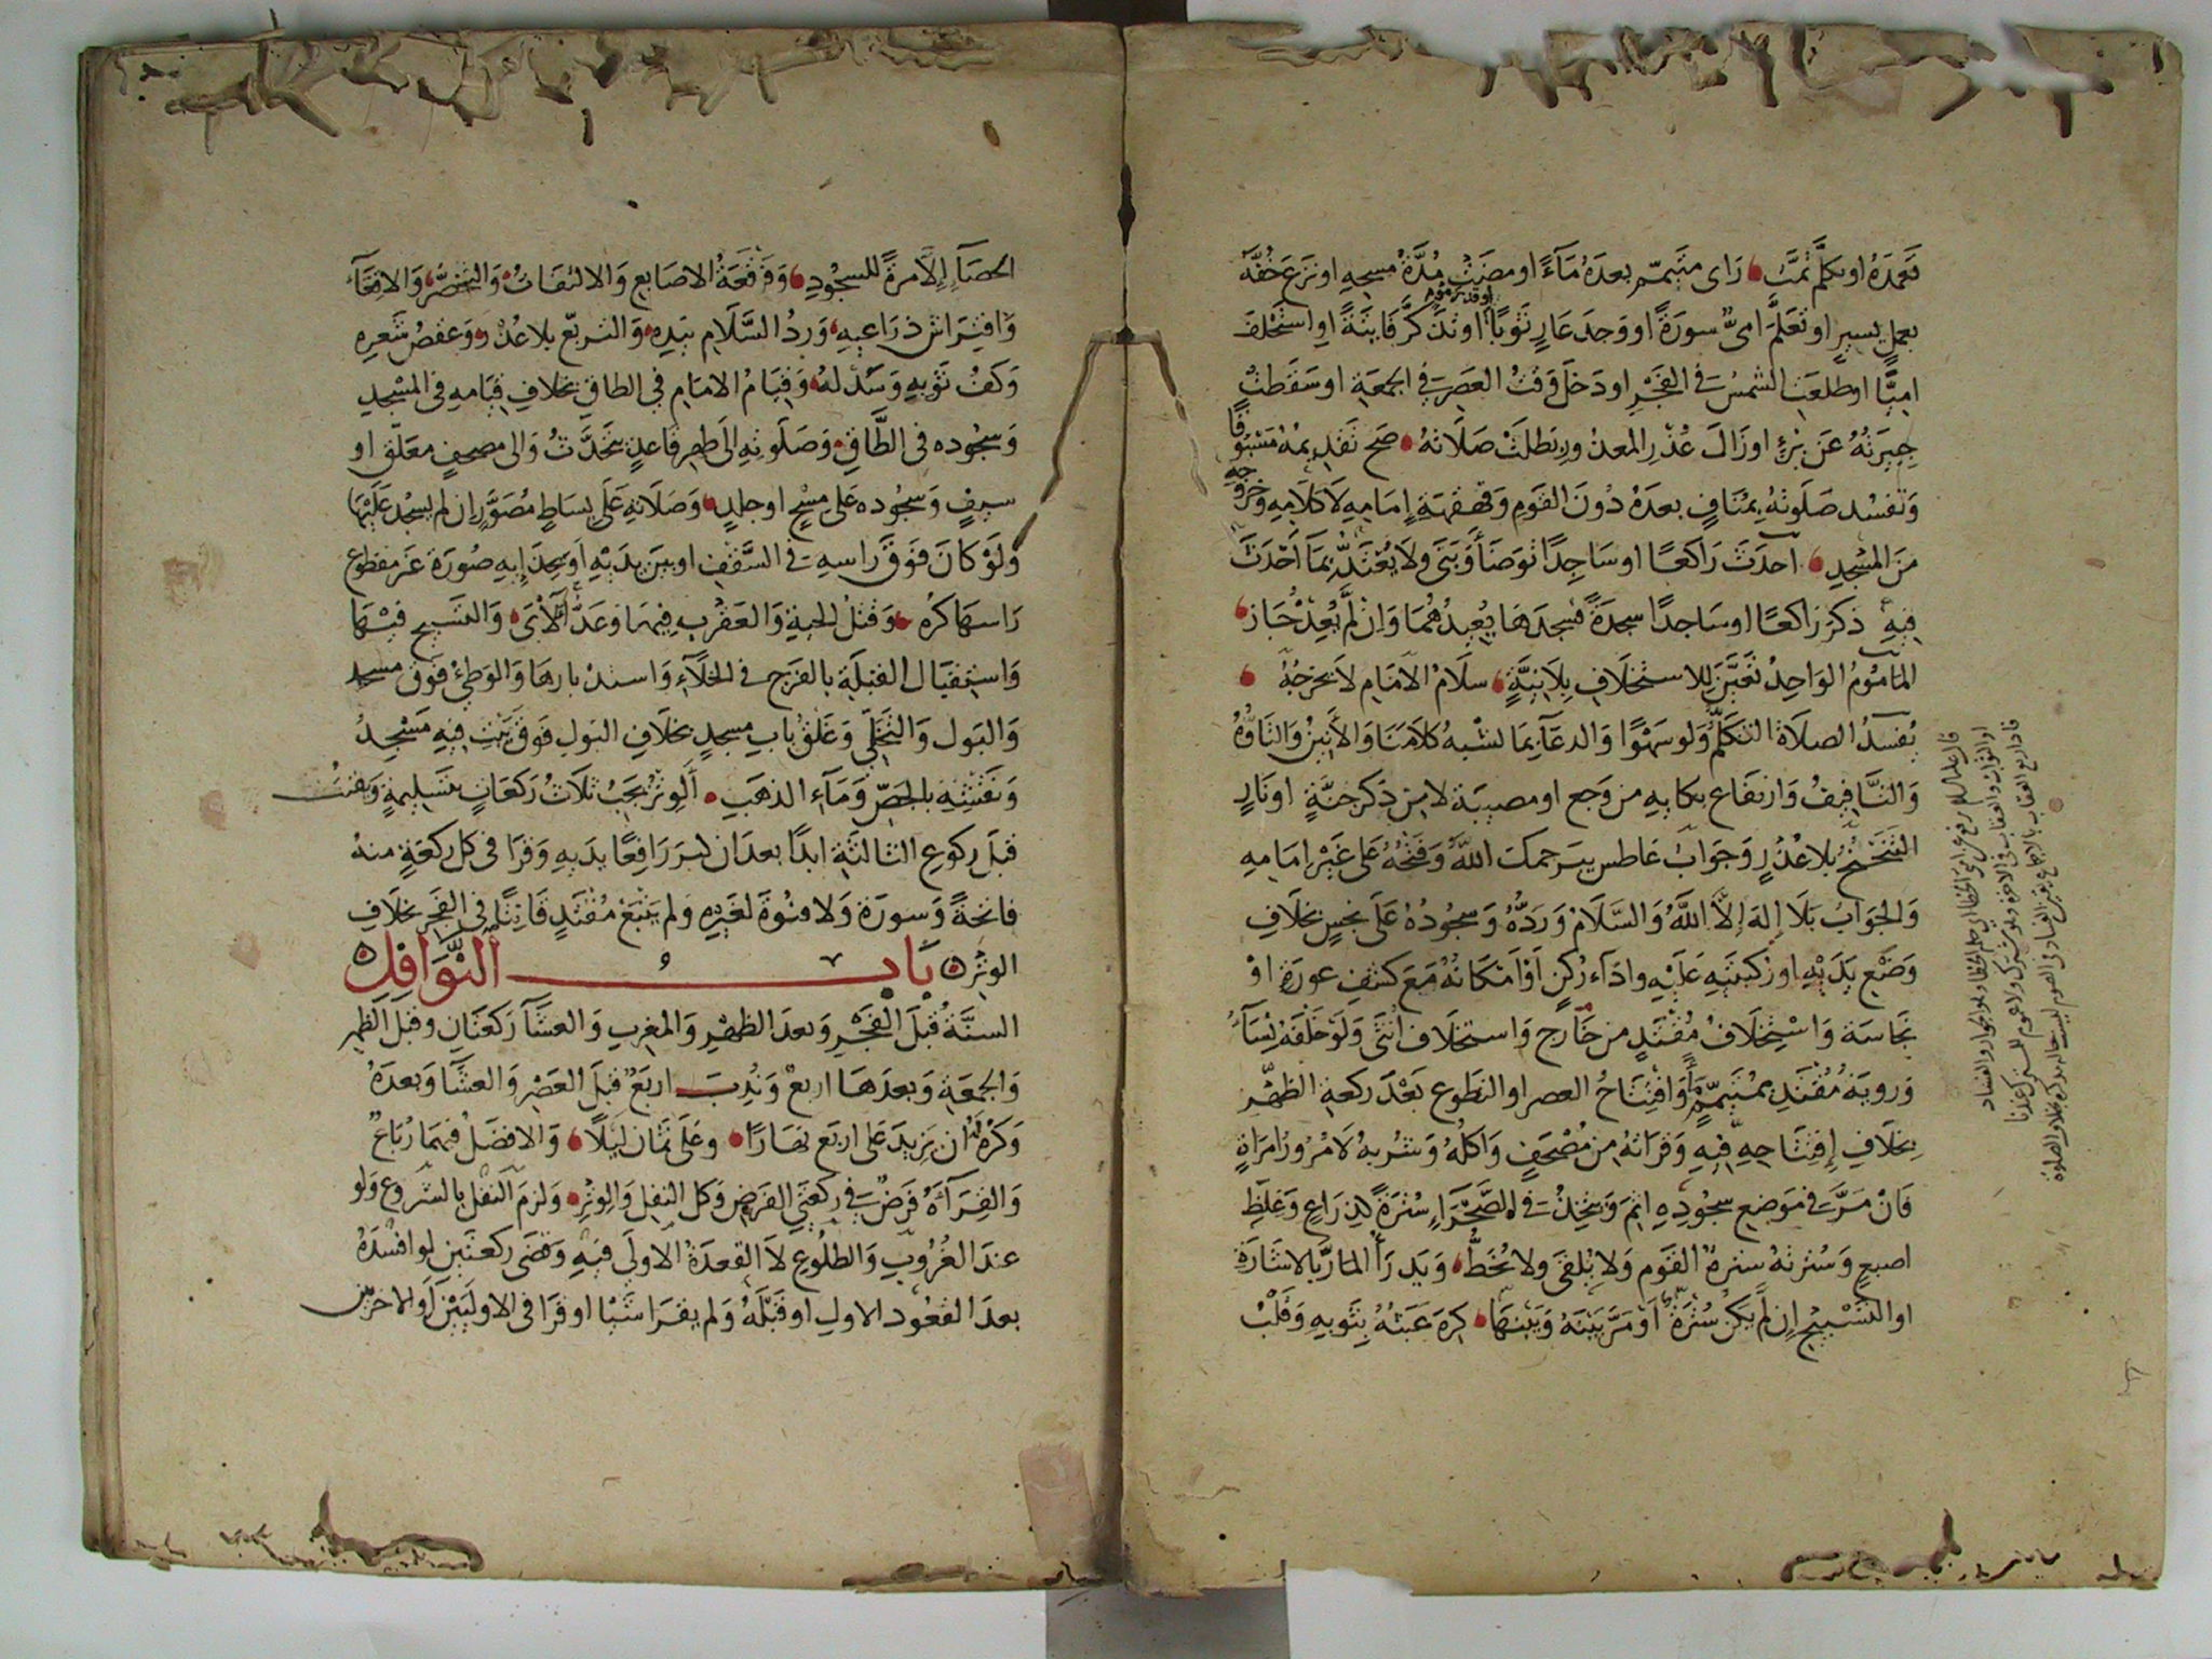 تعمده او تكلم تمت راى متيمم بعده مآءً او مضت مدة مسحه او نزع خفه
بعمل يسير او تعلم امى سورة او وجد عار ثوبا او تذكر فايتة او استخلف
او قدر موم
اميًّا او طلعت الشمس في الفجر او دخل وقت العصر في الجمعة او سقطت
جبيرته عن برئ او زال عذر المعذور بطلت صلاته صح تقديمه مسبوقا
وتفسد صلوته بمناف بعده دون القوم وقهقهة امامه لا كلامه وخروجه
من المسجد احدث راكعا او ساجدا توضأ وبنى ولا يعتد بما احدث
فيه ذكر راكعا او ساجدا سجدة فسجدها يعيدهما وان لم يعد جاز
الماموم الواحد تعين للاستخلاف بلا نية سلام الامام لا يخرجه
يفسد الصلاة التكلم ولو سهوا والدعآء بما لشبه كلامنا والأنين والتاوه
والتافيف وارتفاع بكايه من وجع او مصيبة لا من ذكر جنة او نار
التنحنح بلا عذر وجواب عاطس بيرحمك الله وفتحه على غير امامه
والجواب بلا إله إلا الله والسلام ورده وسجوده على نجس بخلاف
وضع يديه او ركبتيه عليه واداء ركن او امكانه مع كشف عورة او
نجاسة واستخلاف مقتد من خارج واستخلاف انثى ولو خلفه نساء
وروية مقتد بمتيمم مآء وافتتاح العصر او التطوع بعد ركعة الظهر
بخلاف إفتتاحه فيه وقراته من مصحف واكله وشربه لا مرور امراة
فان مر في موضع سجوده اثم ويتخذ في الصحرآء سترة كذراع وغلظ
اصبع وسترته سترة القوم ولا يلقى ولا يخط ويدرأ المار بالاشارة
او التسبيح إن لم يكن سترة او مر بينه وبينها كره عبثه بثوبه وقلب
الحصآء إلا مرة للسجود وفرقعة الاصابع والالتفات والتخصر والاقعآء
وافتراش ذراعيه ورد السلام بيده والتربع بلا عذر وعقص شعره
وكف ثوبه وسدله وقيام الامام في الطاق بخلاف قيامه في المسجد
وسجوده فى الطاق وصلوته الى ظهر قاعد يتحدث والى مصحف معلق او
سيف وسجوده على مسح او جلد وصلاته على بساط مصور إن لم يسجد عليها
ولو كان فوق راسه في السقف او بين يديه او بحذإيه صورة غير مقطوع
راسها كره وقتل الحية والعقرب فيها وعد الآى والتسبيح فيها
واستقبال القبلة بالفرج في الخلآء واستدبارها والوطئ فوق مسجد
والبول والتخلى وغلق باب مسجد بخلاف البول فوق بيت فيه مسجد
ونقشه بالجص ومآء الذهب ألوتر يجب ثلاث ركعات بتسليمة ويقنت
قبل ركوع الثالثة ابدًا بعد ان كبر رافعًا يديه وقرا في كل ركعة منه
فاتحةً وسورة ولا قنوة لغيره ولم يتبع مقتد قانتًا في الفجر بخلاف
الوتر باب النوافل
السنة قبل الفجر وبعد الظهر والمغرب والعشآ ركعتان وقبل الظهر
والجمعة وبعدها اربع وندب اربع قبل العصر والعشا وبعده
وكره ان يزيد على اربع نهارا وعلى ثمان ليلا والافضل فيهما رباع
والقرآة فرض في ركعتي الفرض وكل النفل والوتر ولزم النفل بالشروع ولو
عند الغروب والطلوع لا القعدة الاولى فيه وقضى ركعتين لو افسده
بعد القعود الاول او قبله ولم يقرا شيئا او قرا فى الاوليين او الاخريين